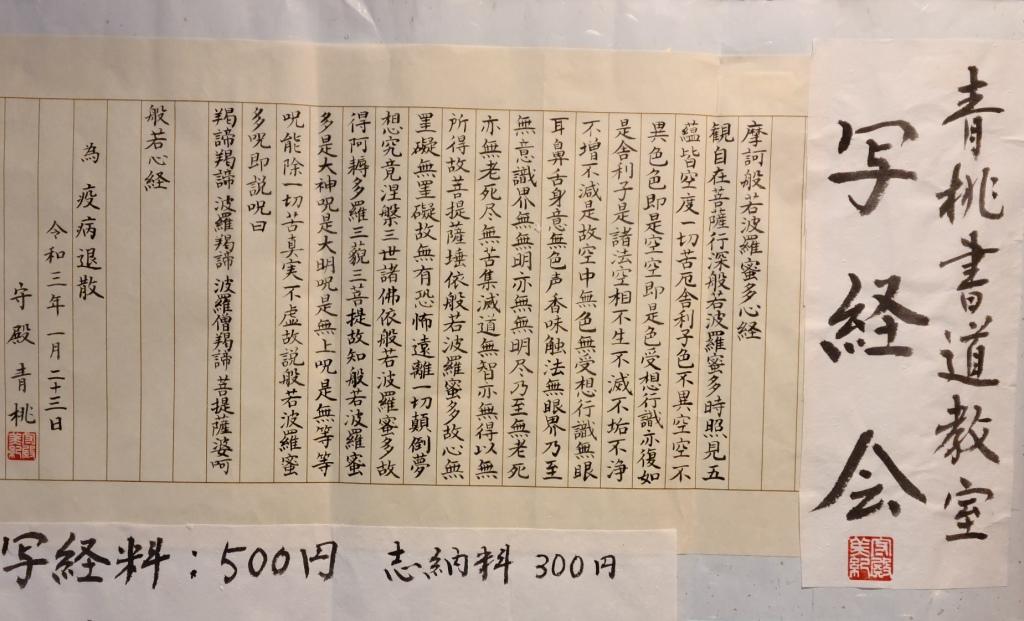 青桃書道教室
写経会
摩訶般若波羅蜜多心経
観自在菩薩行深般若波羅蜜多時照見五
蘊皆空度一切苦厄舎利子色不異空空不
異色色即是空空即是色受想行識亦復如
是舎利子是諸法空相不生不滅不垢不浄
不増不減是故空中無色無受想行識無眼
耳鼻舌身意無色声香味触法無眼界乃至
無意識界無無明亦無無明尽乃至無老死
亦無老死尽無苦集滅道無智亦無得以無
所得故菩提薩埵依般若波羅蜜多故心無
罣礙無罣礙故無有恐怖遠離一切顛倒夢
想究竟涅槃三世諸佛依般若波羅蜜多故
得阿耨多羅三藐三菩提故知般若波羅蜜
多是大神呪是大明呪是無上呪是無等等
呪能除一切苦真実不虚故説般若波羅蜜
多呪即説呪曰
羯諦羯諦 波羅羯諦 波羅僧羯諦 菩提薩婆呵
般若心経
為 疫病退散
令和三年 一月二十三日
守殿 青桃
写経料：500円 志納料 300円